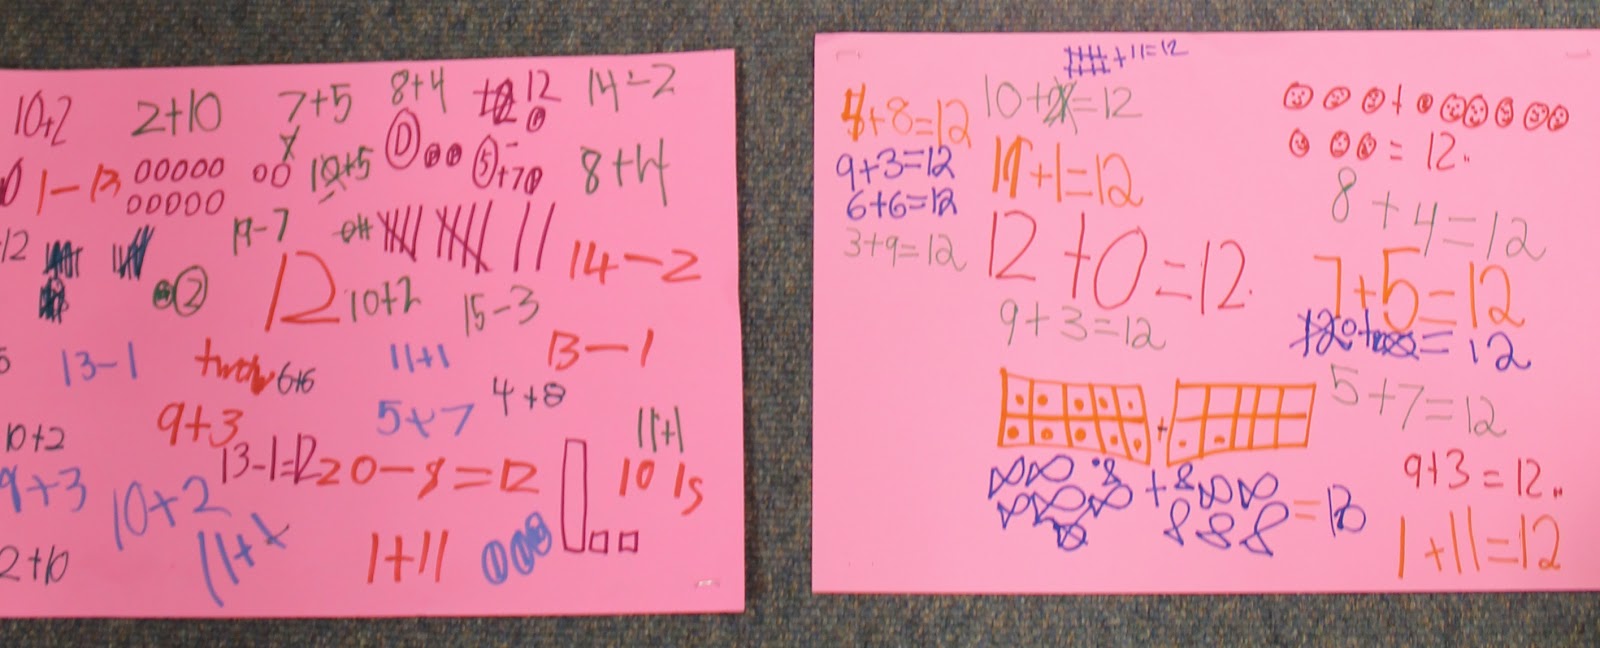 10+2
2+10
7+5
8+4
12
14-2
1-13
10+5
8+4
12
19-7
14-2
2
12
10+2
15-3
13-1
6+6
11+1
13-1
9+3
5+7
4+8
10+2
13-1=12
20-8=12
11+1
9+3
10+2
10 1s
11+1
1+11
2+10
+11=12
+8=12
10+2=12
9+3=12
11+1=12
= 12.
6+6=12
8+4=12
3+9=12
12+0=12.
7+5=12
9+3=12
= 12
5+7=12
9+3=12..
1+11=12